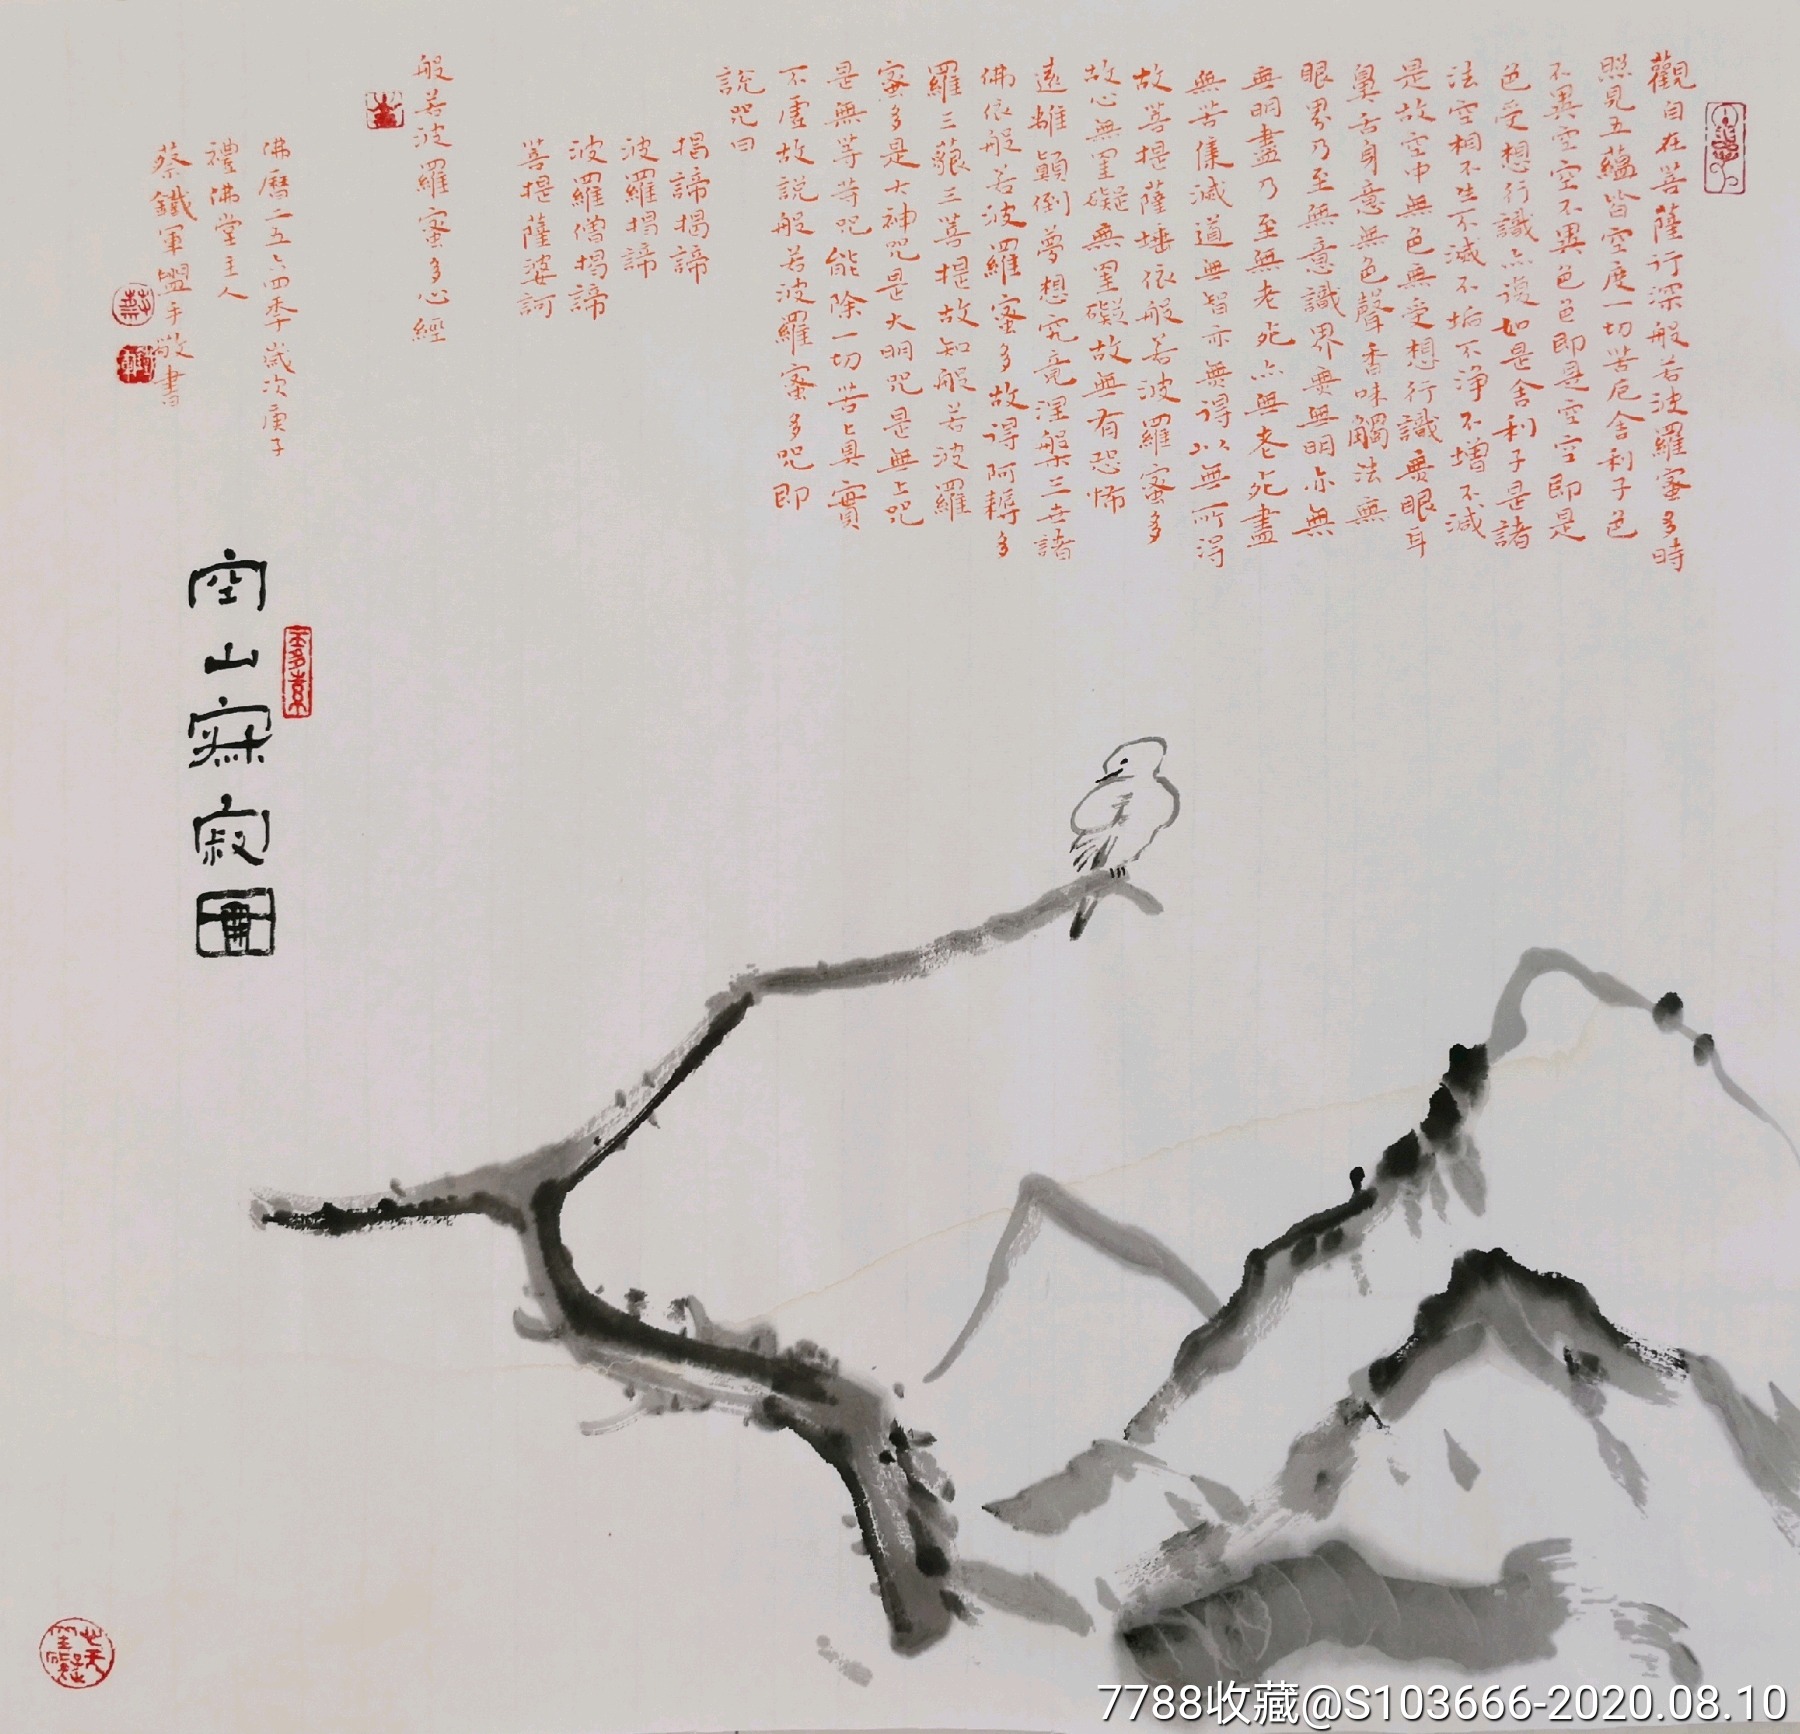 觀自在菩薩行深般若波羅蜜多時
照見五蘊皆空度一切苦厄舍利子色
不異空空不異色色即是空空即是
色受想行識亦復如是舍利子是諸
法空相不生不滅不垢不淨不增不減
是故空中無色無受想行識無眼耳
鼻舌身意無色聲香味觸法無
眼界乃至無意識界無無明亦無
無明盡乃至無老死亦無老死盡
無苦集滅道無智亦無得以無所得
故菩提薩埵依般若波羅蜜多
故心無罣礙無罣礙故無有恐怖
遠離顛倒夢想究竟涅槃三世諸
佛依般若波羅蜜多故得阿耨多
羅三藐三菩提故知般若波羅
蜜多是大神咒是大明咒是無上咒
是無等等咒能除一切苦真實
不虛故說般若波羅蜜多咒即
說咒曰
揭諦揭諦
波羅揭諦
波羅僧揭諦
菩提薩婆訶
般若波羅蜜多心經
佛曆二五六四季歲次庚子
禮佛堂主人
蔡鐵軍盥手敬書
空山寂寂圖
7788收藏@S103666-2020.08.10